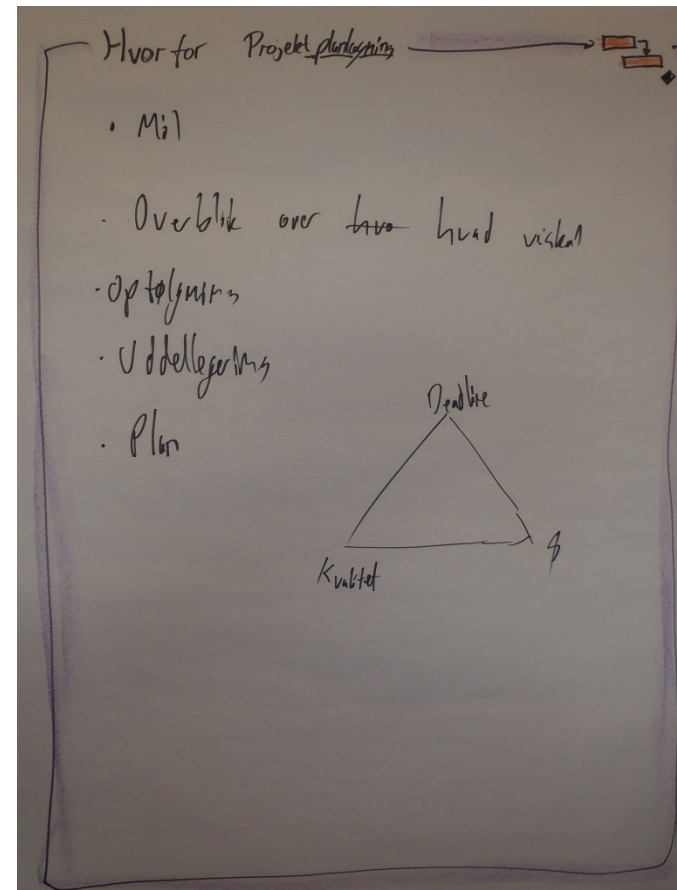 Hvor for Projektplanlægning
· Mål
· Overblik over hvo hvad viskal
· Opfølgning
· Uddellegering
· Plan
Deadline
Kvalitet $